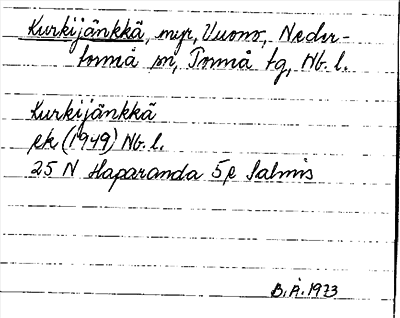 Kurkijänkkä, myr, Vuono, Neder-
torneå sn, Torneå tg, Nb. l.
Kurkijänkkä
ek (1949) Nb. l.
25 N Haparanda 5e Salmis
B. Å. 1973